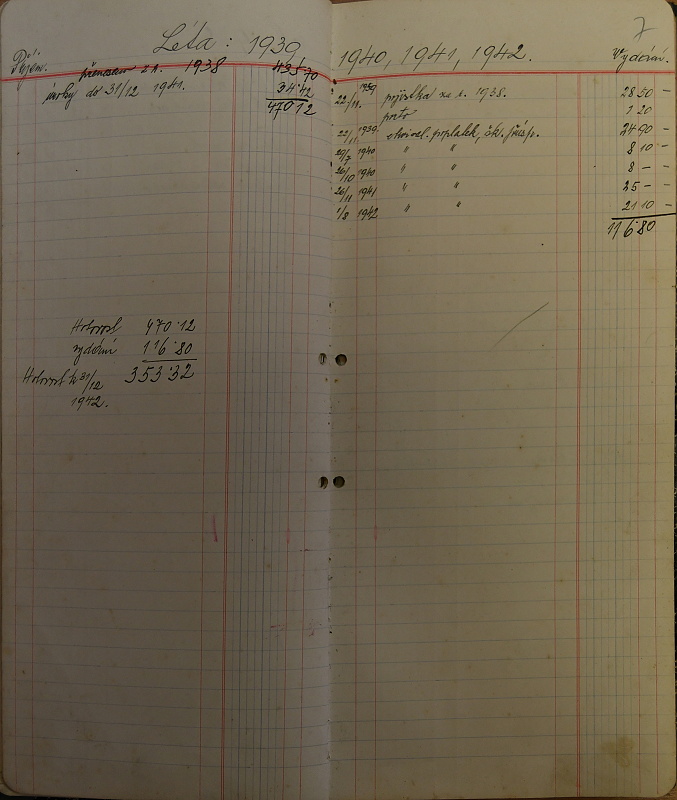 7
Léta: 1939 1940, 1941, 1942.
Příjem. Vydání.
přenesen z r. 1938 435 70
úroky do 31/12 1941. 34 42
470 12
22/11. 1939 pojistka za r. 1938. 28 50 -
porto 1 20
22/11 1939. poplatek, 24 90 -
29/7 1940 " " 8 10 -
26/10 1940 " " 8 - -
26/11 1941 " " 25 - -
1/8 1942 " " 21 10 -
116 80
Hotovost 470 12
vydání 116 80
Hotovost k 31/12 353 32
1942.